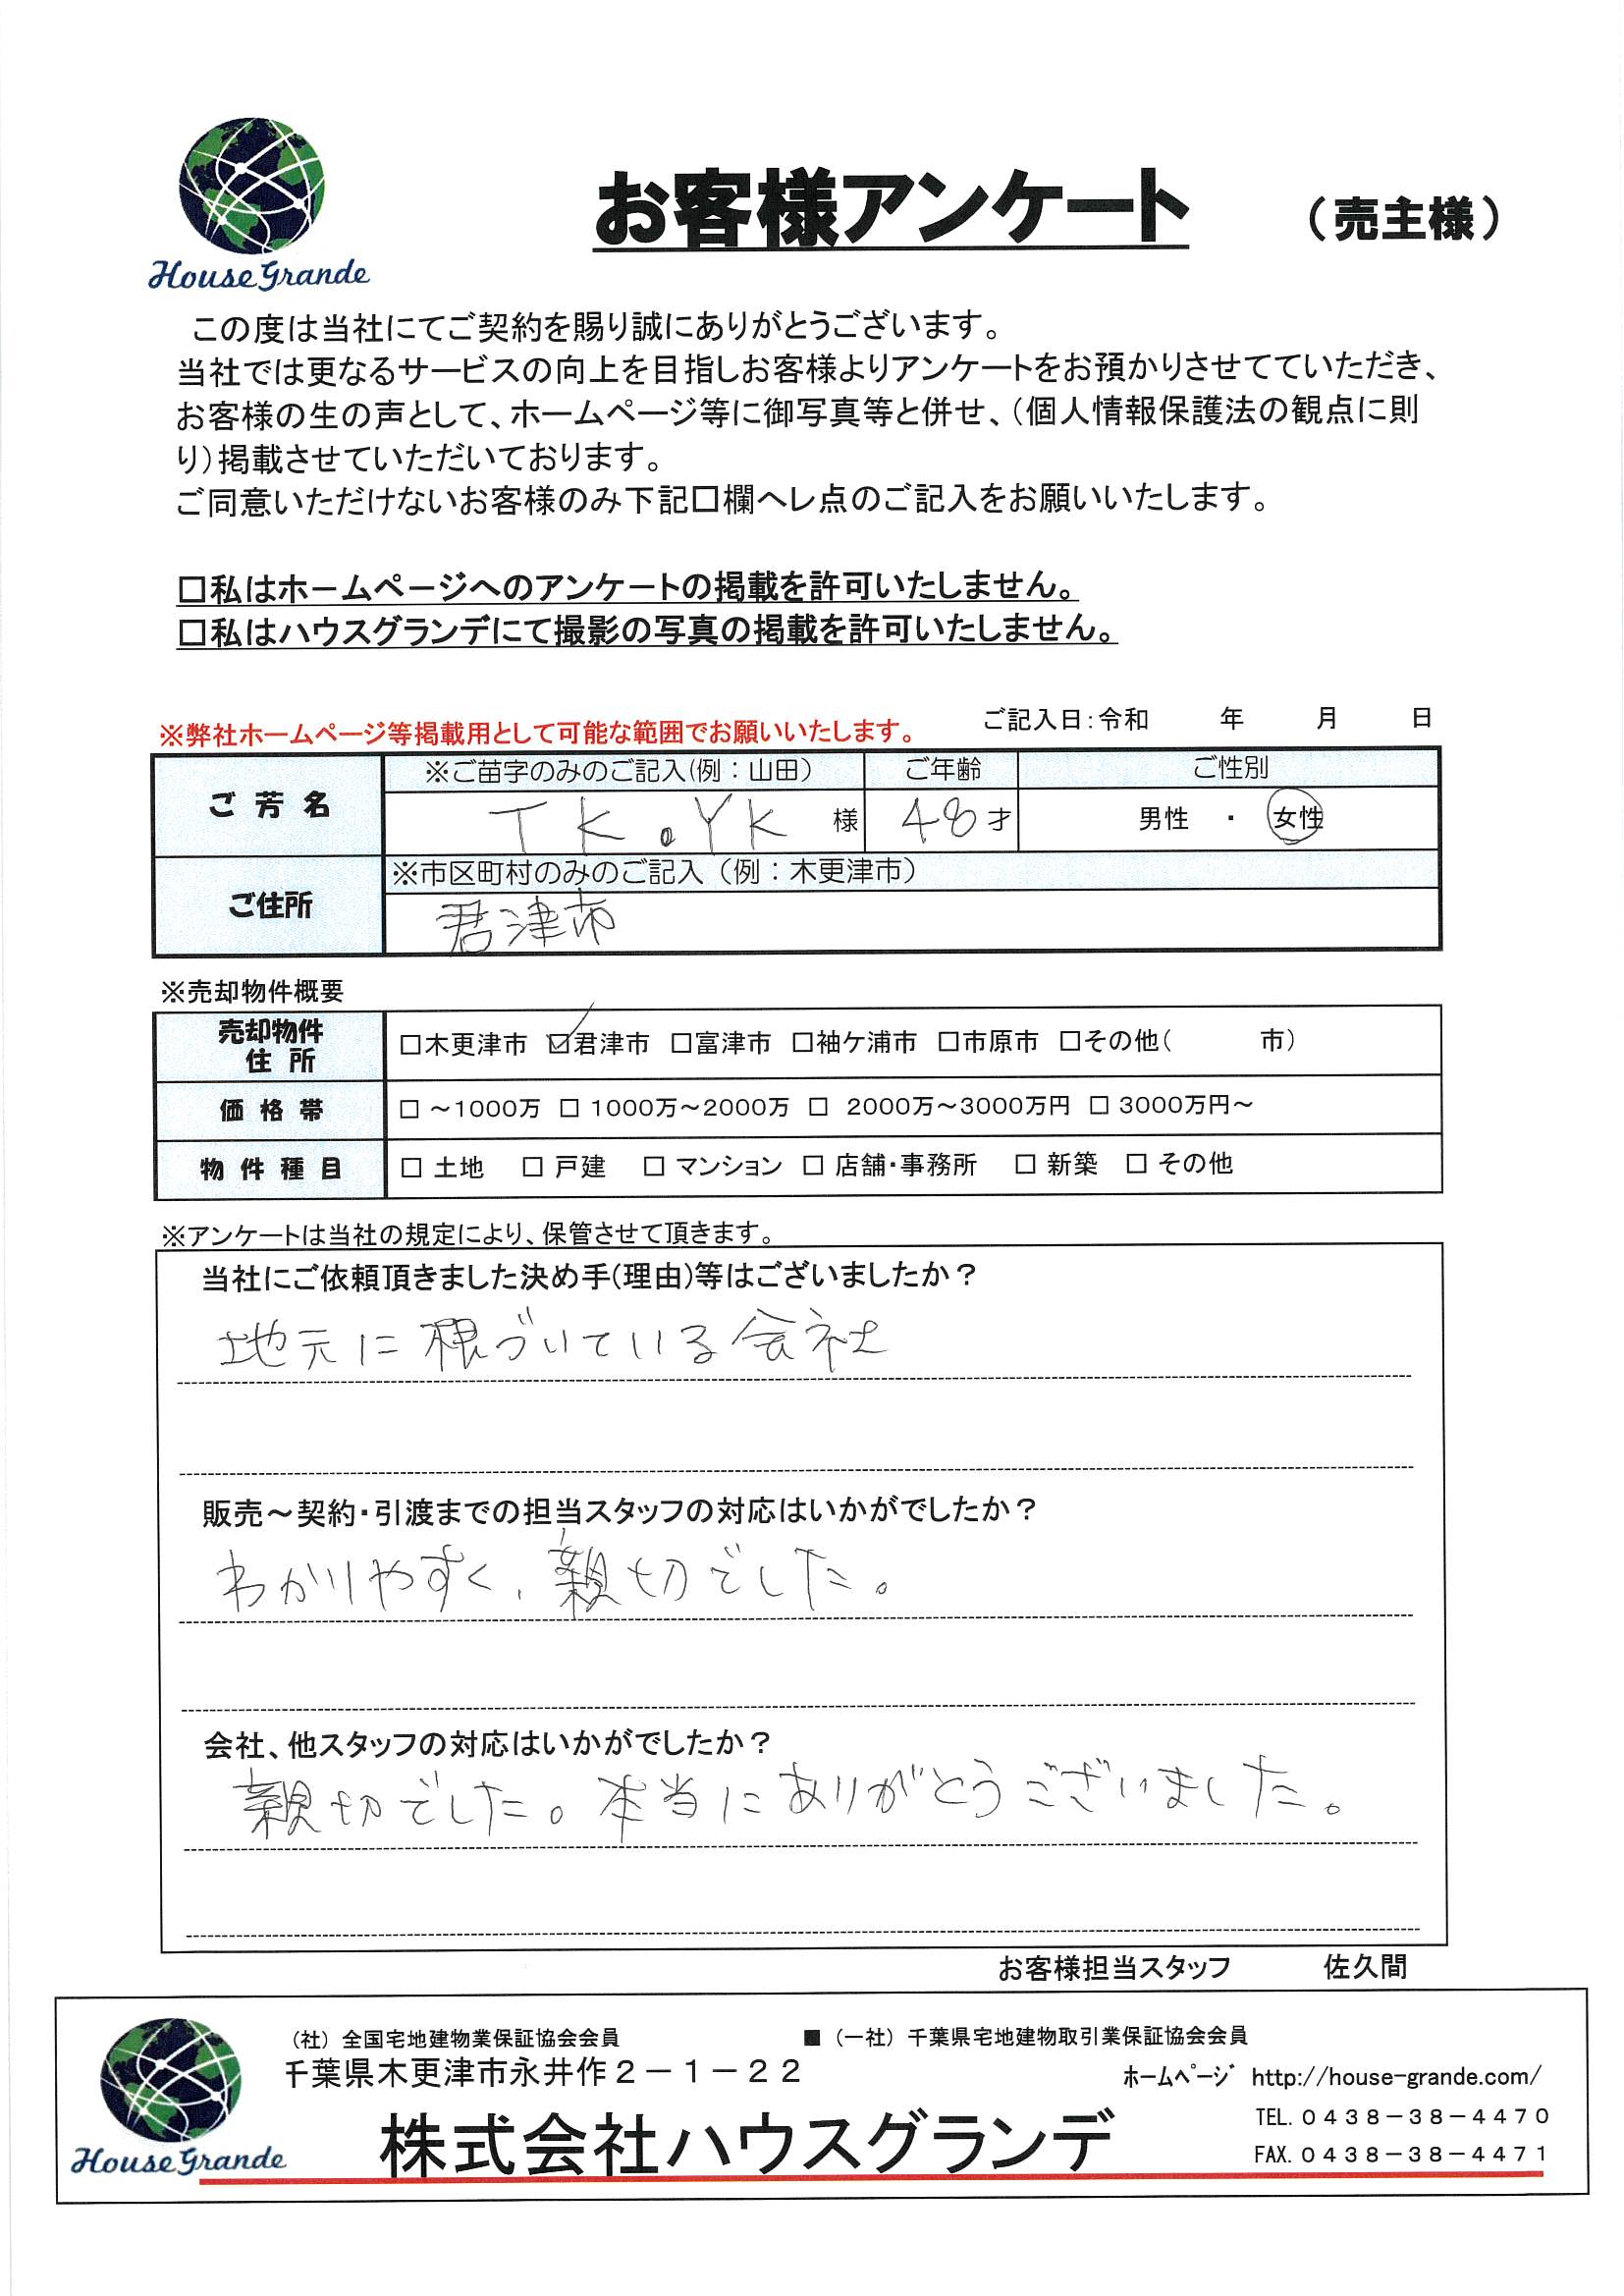 House Grande
お客様アンケート （売主様）
この度は当社にてご契約を賜り誠にありがとうございます。
当社では更なるサービスの向上を目指しお客様よりアンケートをお預かりさせてていただき、
お客様の生の声として、ホームページ等に御写真等と併せ、（個人情報保護法の観点に則
り）掲載させていただいております。
ご同意いただけないお客様のみ下記口欄へレ点のご記入をお願いいたします。
□私はホームページへのアンケートの掲載を許可いたしません。
□私はハウスグランデにて撮影の写真の掲載を許可いたしません。
※弊社ホームページ等掲載用として可能な範囲でお願いいたします。 ご記入日：令和 年 月 日
ご 芳 名 ※ご苗字のみのご記入(例：山田） ご年齢 ご性別
TK.YK 様 48才 男性 ・ 女性
ご住所 ※市区町村のみのご記入（例：木更津市）
君津市
※売却物件概要
売却物件
住 所 □木更津市 ☑君津市 □富津市 □袖ケ浦市 □市原市 □その他（ 市）
価 格 帯 □ ～1000万 □ 1000万～2000万 □ 2000万～3000万円 □ 3000万円～
物 件 種 目 □ 土地 □ 戸建 □ マンション □ 店舗・事務所 □ 新築 □ その他
※アンケートは当社の規定により、保管させて頂きます。
当社にご依頼頂きました決め手(理由)等はございましたか？
地元に根づいている会社
販売～契約・引渡までの担当スタッフの対応はいかがでしたか？
わかりやすく、親切でした。
会社、他スタッフの対応はいかがでしたか？
親切でした。本当にありがとうございました。
お客様担当スタッフ 佐久間
（社）全国宅地建物業保証協会会員 ■（一社）千葉県宅地建物取引業保証協会会員
千葉県木更津市永井作２－１－２２ ﾎｰﾑﾍﾟｰｼﾞ http://house-grande.com/
株式会社ハウスグランデ TEL.０４３８－３８－４４７０
FAX.０４３８－３８－４４７１
House Grande